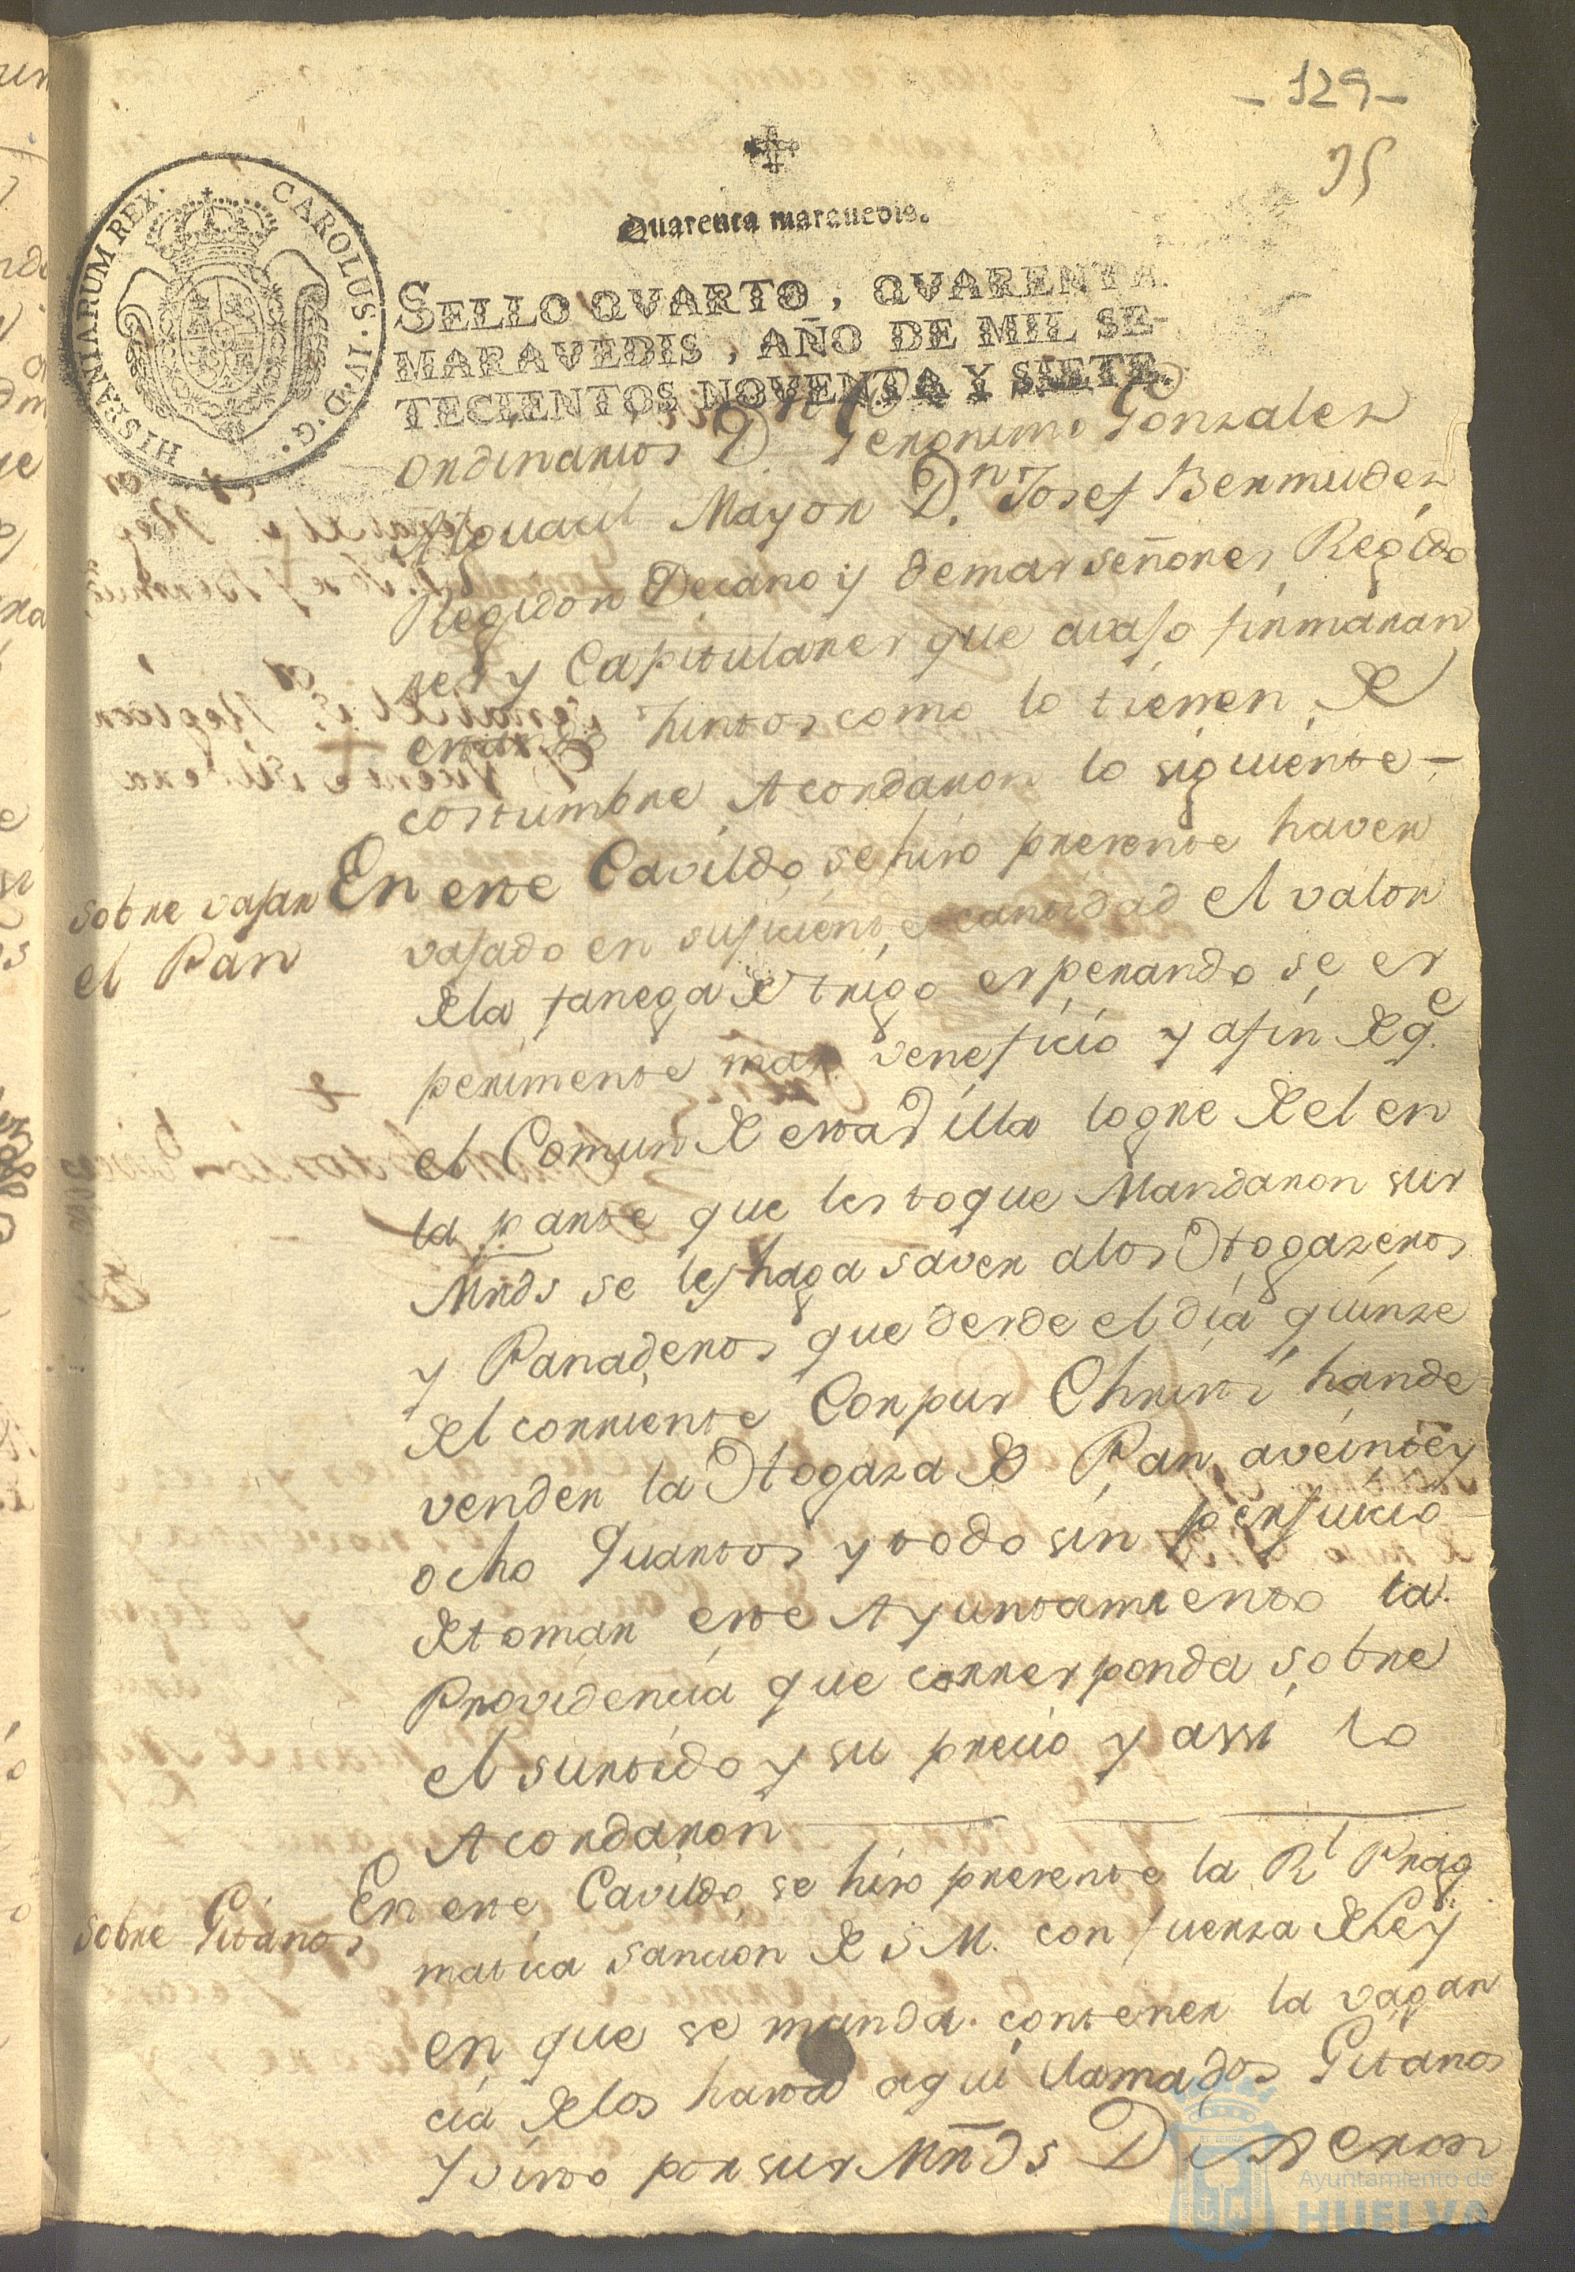 - 129 -
95
Quarenta maravedis.
HISPANIARUM REX. CAROLUS. IV. D. G.
SELLO QVARTO, QVARENTA
MARAVEDIS, AÑO DE MIL SE-
TECIENTOS NOVENTA Y SIETE.
ordinarios Dn Geronimo Gonzalez
Alguacil Mayor Dn. Josef Bermudez
Regidor Decano y demas señores Regido
res y Capitulares que avajo firmaran
estando juntos como lo tienen de
costumbre Acordaron lo siguiente -
sobre vajar
el Pan
En este Cavildo se hizo presente haver
vajado en suficiente cantidad el valor
de la fanega de trigo esperando se es
perimente mas veneficio y afin de qe
el Comun de esta Villa logre del en
la parte que les toque Mandaron sus
Mrds se les haga saver a los Hogazeros
y Panaderos que desde el dia quinze
del corriente Corpus Christi hande
vender la Hogaza de Pan aveinte y
ocho Quartos y todo sin perjuicio
de tomar este Ayuntamiento la
Providencia que corresponda sobre
el surtido y su precio y assi lo
Acordaron
sobre Gitanos
En este Cavildo se hizo presente la Rl Prag
matica sancion de S. M. con fuerza de Ley
en que se manda contener la vagan
cia de los hasta aqui llamados Gitanos
y visto por sus Mrds Dixeron
Ayuntamiento de
HUELVA